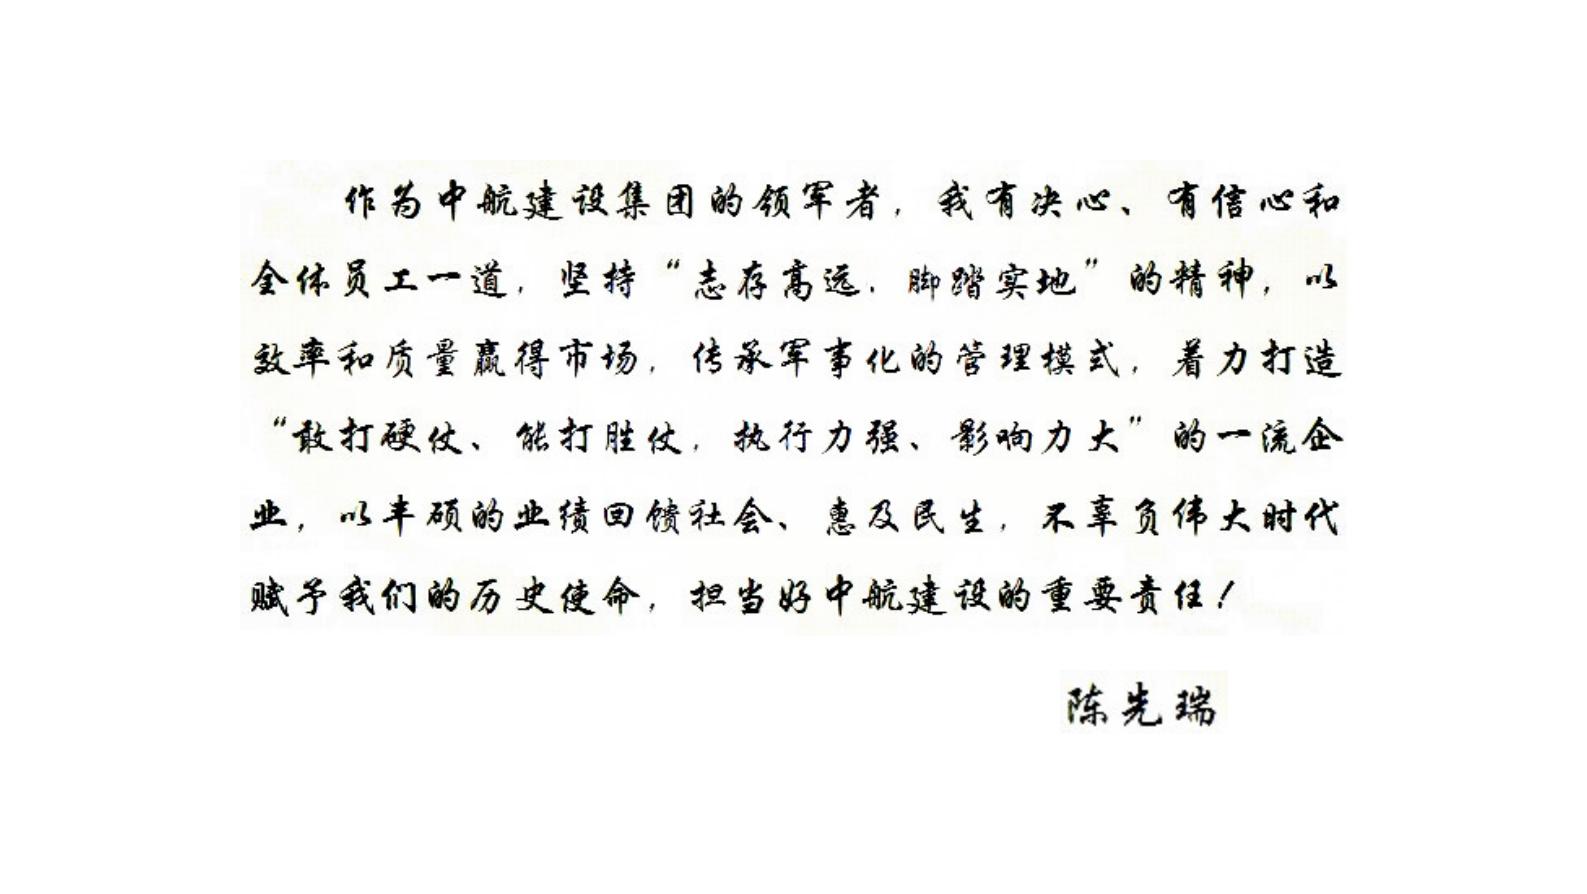 作为中航建设集团的领军者，我有决心、有信心和
全体员工一道，坚持“志存高远，脚踏实地”的精神，以
效率和质量赢得市场，传承军事化的管理模式，着力打造
“敢打硬仗、能打胜仗，执行力强、影响力大”的一流企
业，以丰硕的业绩回馈社会、惠及民生，不辜负伟大时代
赋予我们的历史使命，担当好中航建设的重要责任！
陈先瑞